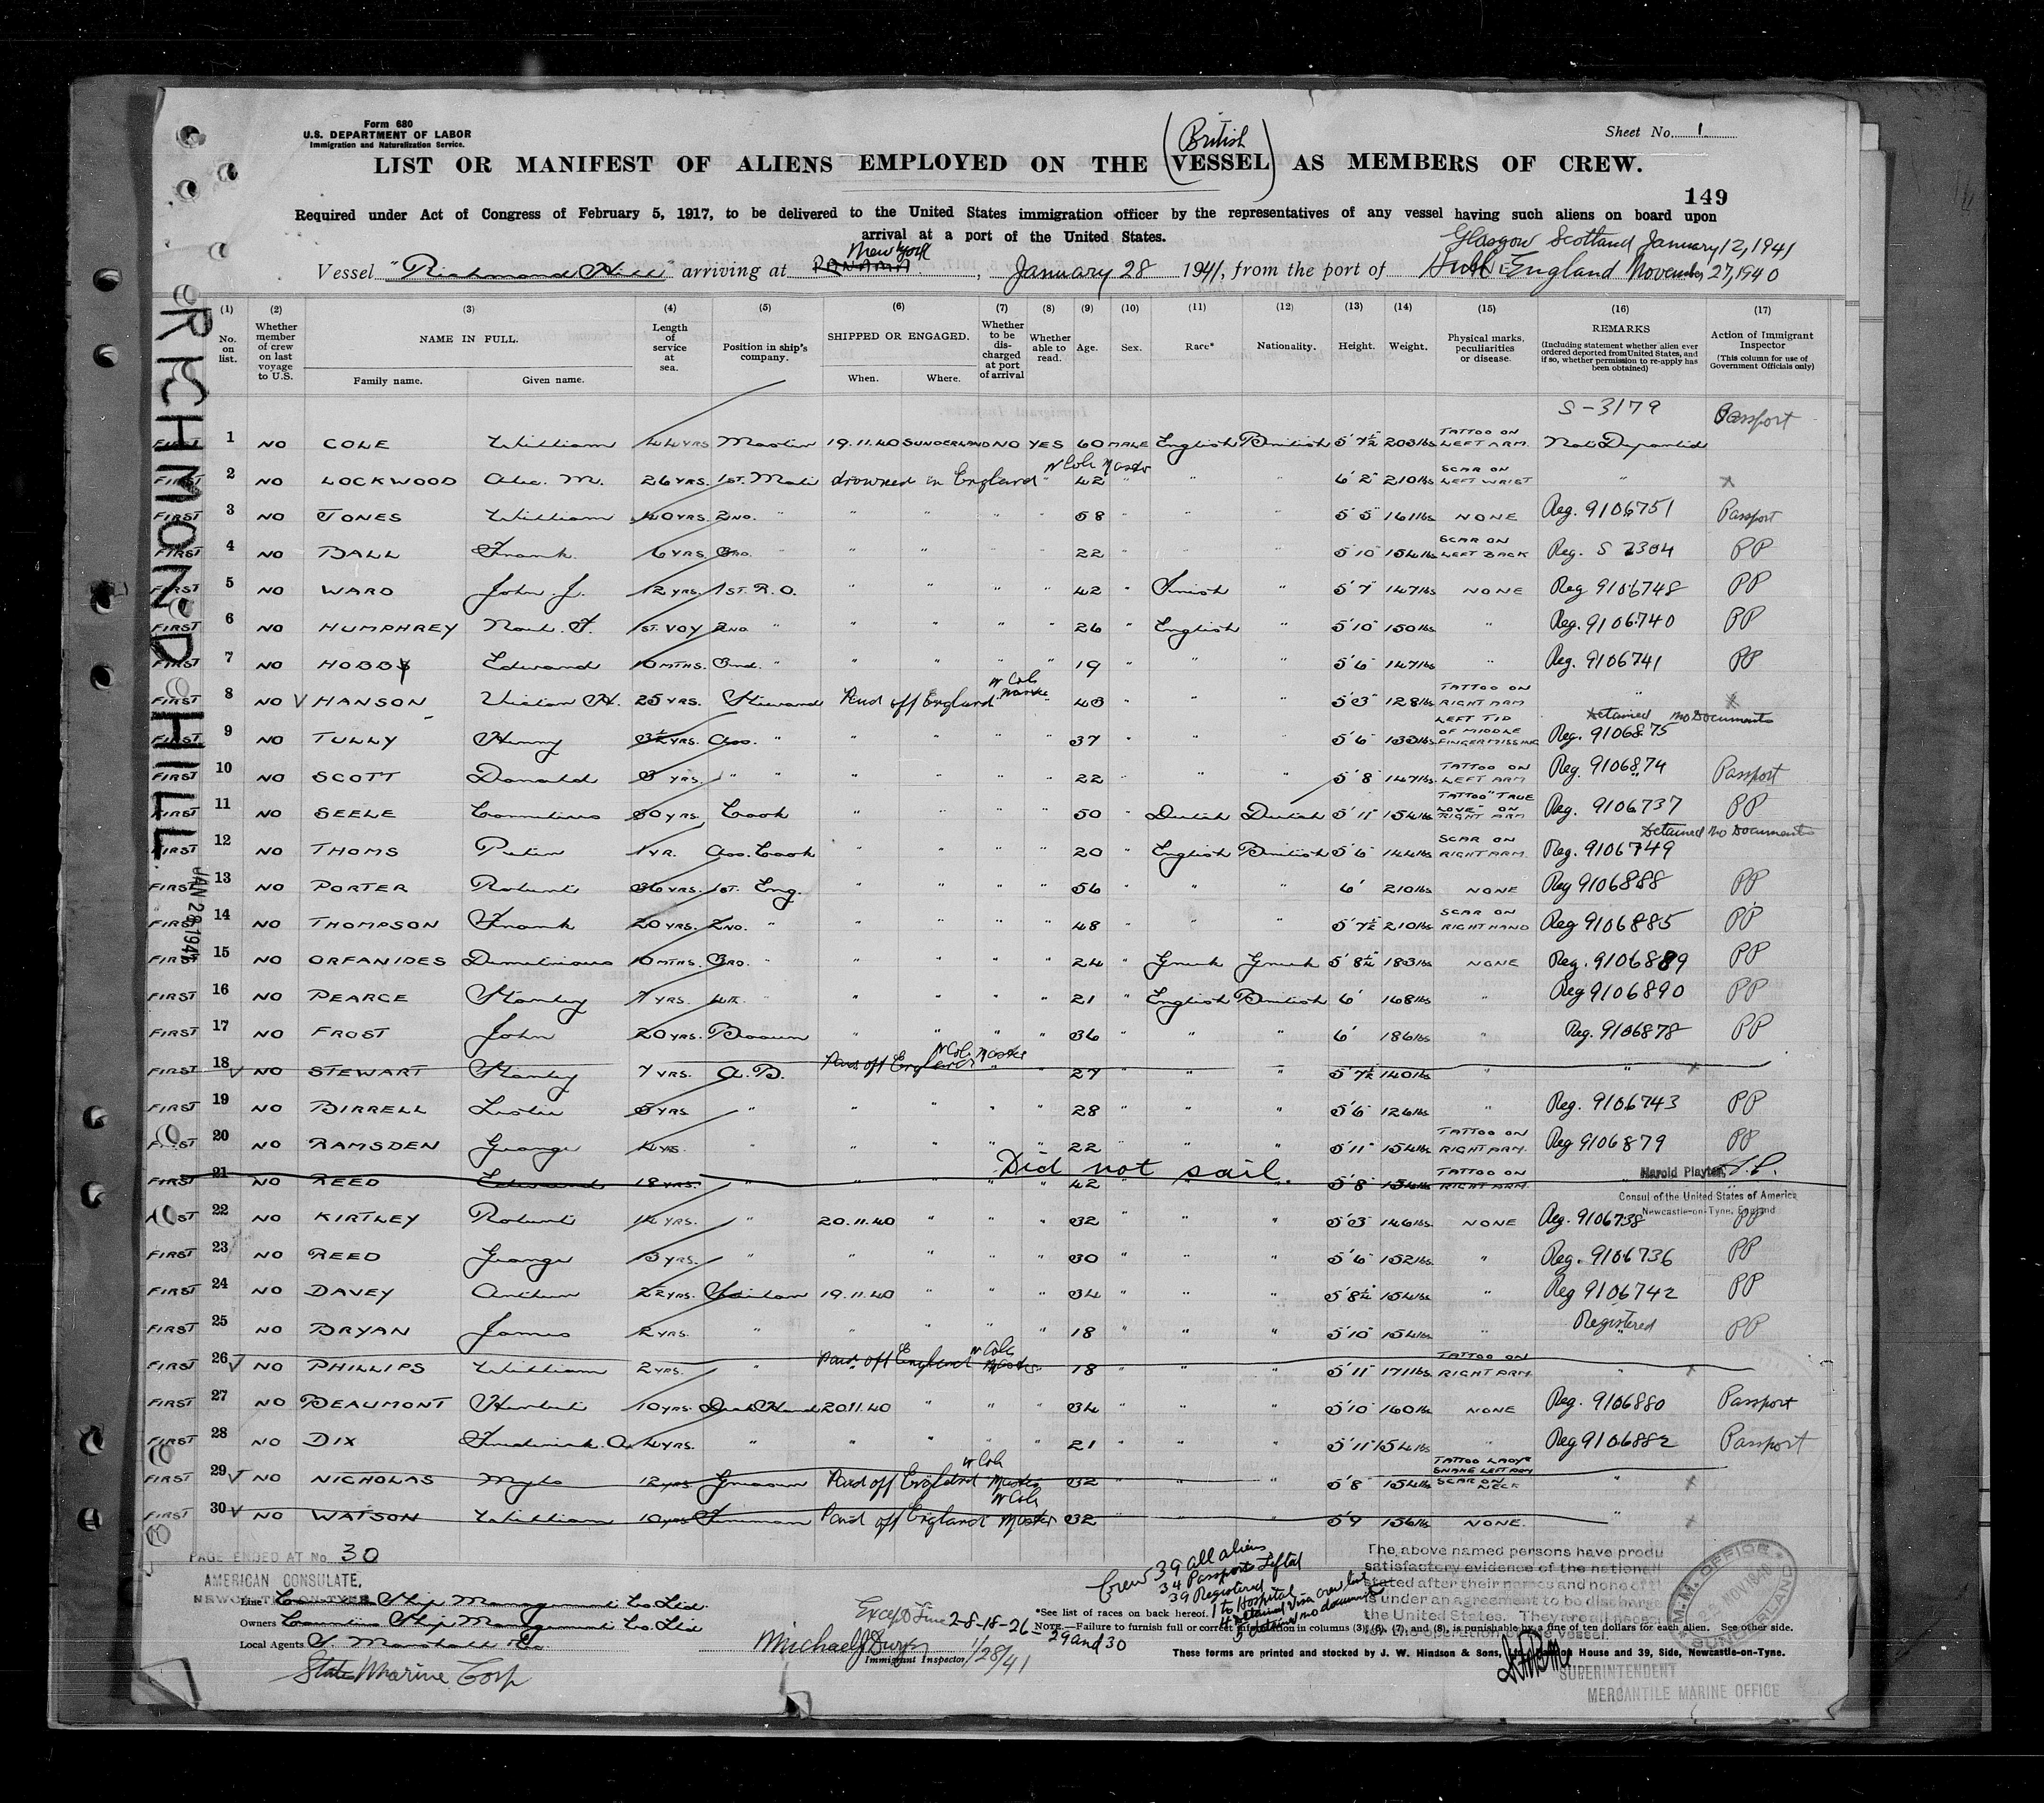 Form 680
U.S. DEPARTMENT OF LABOR
Immigration and Naturalization Service.
Sheet No. 1
British
LIST OR MANIFEST OF ALIENS EMPLOYED ON THE (VESSEL) AS MEMBERS OF CREW.
149
Required under Act of Congress of February 5, 1917, to be delivered to the United States immigration officer by the representatives of any vessel having such aliens on board upon
arrival at a port of the United States.
Glasgow Scotland January 12, 1941
New York
Vessel "Richmond Hill" arriving at PANAMA, January 28 1941, from the port of Hull England November 27, 1940
(1) (2) (3) (4) (5) (6) (7) (8) (9) (10) (11) (12) (13) (14) (15) (16) (17)
No. on list. Whether member of crew on last voyage to U.S. NAME IN FULL. Family name. Given name. Length of service at sea. Position in ship's company. SHIPPED OR ENGAGED. When. Where. Whether to be discharged at port of arrival Whether able to read. Age. Sex. Race* Nationality. Height. Weight. Physical marks, peculiarities or disease. REMARKS (Including statement whether alien ever ordered deported from United States, and if so, whether permission to re-apply has been obtained) Action of Immigrant Inspector (This column for use of Government Officials only)
S-3179 Passport
FIRST 1 NO COLE William 44 YRS Master 19.11.40 SUNDERLAND NO YES 60 MALE English British 5'7½ 203 lbs TATTOO ON LEFT ARM Not Deported
W Cole Master
FIRST 2 NO LOCKWOOD Alec. M. 26 YRS. 1ST. Mate drowned in England " 42 " " " 6'2" 210 lbs SCAR ON LEFT WRIST " X
FIRST 3 NO JONES William 40 YRS. 2ND. " " " " " 58 " " " 5'5" 161 lbs NONE Reg. 9106751 Passport
FIRST 4 NO BALL Frank 6 YRS 3RD. " " " " " 22 " " " 5'10" 154 lbs SCAR ON LEFT BACK Reg. S 2304 PP
FIRST 5 NO WARD John J. 12 YRS. 1ST. R.O. " " " " 42 " Irish " 5'7" 147 lbs NONE Reg 9106748 PP
FIRST 6 NO HUMPHREY 1ST. VOY 2ND. " " " " " 26 " English " 5'10" 150 lbs " Reg. 9106740 PP
FIRST 7 NO HOBBY Edward 10 MTHS. 3rd. " " " " " 19 " " " 5'6" 147 lbs " Reg. 9106741 PP
FIRST 8 NO V HANSON Victor H. 25 YRS. Steward Paid off England W Cole Master 43 " " " 5'3" 128 lbs TATTOO ON RIGHT ARM " X
Detained no Documents
FIRST 9 NO TULLY Henry 3½ YRS. Ass. " " " " " 37 " " " 5'6" 133 lbs LEFT TIP OF MIDDLE FINGER MISSING Reg. 9106875
FIRST 10 NO SCOTT Donald 3 YRS. " " " " " " 22 " " " 5'8" 147 lbs. TATTOO ON LEFT ARM Reg. 9106874 Passport
FIRST 11 NO SEELE Cornelius 30 YRS, Cook " " " " 50 " Dutch Dutch 5'11" 154 lbs TATTOO "TRUE LOVE" ON RIGHT ARM Reg. 9106737 PP
Detained no Documents
FIRST 12 NO THOMS Peter 1 YR. Ass. Cook " " " " 20 " English British 5'6" 144 lbs SCAR ON RIGHT ARM Reg. 9106749
FIRST 13 NO PORTER Robert 36 YRS. 1ST. Eng. " " " " 56 " " " 6' 210 lbs NONE Reg 9106888 PP
FIRST 14 NO THOMPSON Frank 20 YRS. 2ND. " " " " " 48 " " " 5'7½ 210 lbs SCAR ON RIGHT HAND Reg 9106885 PP
FIRST 15 NO ORFANIDES Demetrious 10 MTHS. 3RD. " " " " " 24 " Greek Greek 5'8½ 183 lbs NONE Reg. 9106889 PP
FIRST 16 NO PEARCE Stanley 7 YRS. 4th " " " " " 21 " English British 6' 168 lbs " Reg 9106890 PP
FIRST 17 NO FROST John 20 YRS. Bosun " " " " 36 " " " 6' 186 lbs " Reg. 9106878 PP
FIRST 18 V NO STEWART Stanley 7 YRS. A.B. Paid off England W Cole Master 27 " " " 5'7½ 140 lbs " " X
FIRST 19 NO BIRRELL Leslie 5 YRS " " " " " 28 " " " 5'6" 126 lbs " Reg. 9106743 PP
FIRST 20 NO RAMSDEN George 4 YRS. " " " " " 22 " " " 5'11" 154 lbs TATTOO ON RIGHT ARM. Reg 9106879 PP
Did not sail.
FIRST 21 NO REED Edward 18 YRS. " " " " " 42 " " " 5'8" 154 lbs TATTOO ON RIGHT ARM.
Harold Playter,
Consul of the United States of America
Newcastle-on-Tyne, England
FIRST 22 NO KIRTLEY Robert 14 YRS. " 20.11.40 " " " 32 " " " 5'3" 146 lbs. NONE Reg. 9106738 PP
FIRST 23 NO REED George 3 YRS. " " " " " 30 " " " 5'6" 152 lbs " Reg. 9106736 PP
FIRST 24 NO DAVEY Arthur 22 YRS. Sailor 19.11.40 " " " 34 " " " 5'8½" 154 lbs " Reg 9106742 PP
FIRST 25 NO BRYAN James 2 YRS. " " " " " 18 " " " 5'10" 154 lbs " Registered PP
FIRST 26 V NO PHILLIPS William 2 YRS. " Paid off England W Cole Master 18 " " " 5'11" 171 lbs TATTOO ON RIGHT ARM " X
FIRST 27 NO BEAUMONT Herbert 10 YRS. Deck Hand 20.11.40 " " " 34 " " " 5'10" 160 lbs NONE Reg. 9106880 Passport
FIRST 28 NO DIX Frederick 4 YRS. " " " " " 21 " " " 5'11" 154 lbs " Reg 9106882 Passport
FIRST 29 V NO NICHOLAS Myles 12 YRS Paid off England W Cole Master 32 " " " 5'8" 154 lbs TATTOO LADY & SNAKE LEFT ARM SCAR ON NECK " X
FIRST 30 V NO WATSON William 10 YRS Fireman Paid off England W Cole Master 32 " " " 5'9 156 lbs NONE. " X
RICHMOND HILL
JAN 28 1941
PAGE ENDED AT No. 30
AMERICAN CONSULATE,
NEWCASTLE-ON-TYNE
Line Counties Ship Management Co. Ltd.
Owners Counties Ship Management Co. Ltd
Local Agents
States Marine Corp
Except Line 2-8-18-21-26-29 and 30
Immigrant Inspector 1/28/41
Crew 39 all aliens
34 Passports Lifted
39 Registered
1 to Hospital
*See list of races on back hereof.
NOTE.—Failure to furnish full or correct information in columns (3), (6), (7), and (8), is punishable by a fine of ten dollars for each alien. See other side.
These forms are printed and stocked by J. W. Hindson & Sons, Ltd., House and 39, Side, Newcastle-on-Tyne.
The above named persons have produ
satisfactory evidence of the nationali
stated after their names and none of t
is under an agreement to be discharge
the United States. They are all neces
for the operation of the vessel.
M.M. OFFICE
NOV 1940
SUNDERLAND
SUPERINTENDENT
MERCANTILE MARINE OFFICE